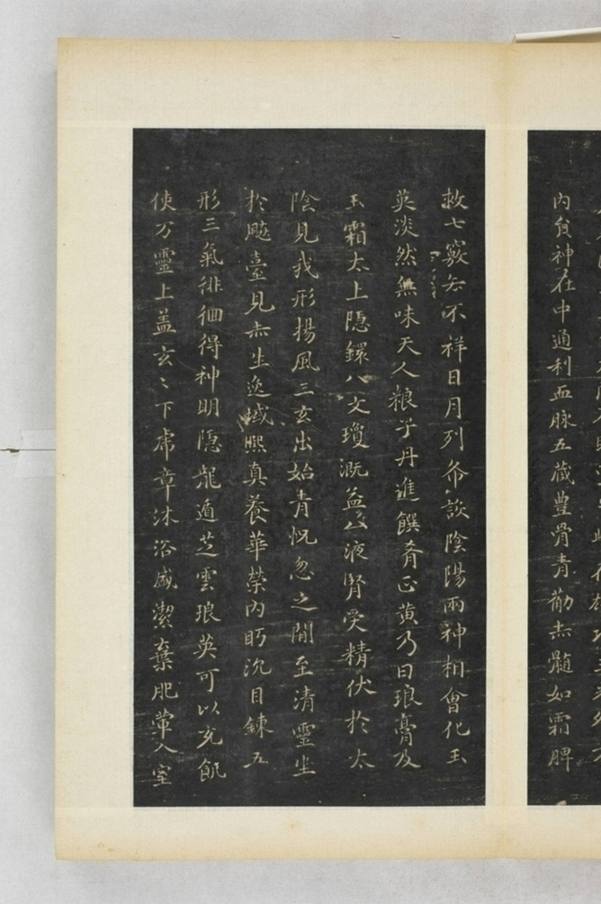 内負神在中通利血脉五藏豊骨青勒赤髓如霜脾
救七竅去不祥日月列布設陰陽兩神相會化玉
英淡然無味天人粮子丹進饌肴正黄乃曰琅膏及
玉霜太上隠鐶八文瓊溉益八液腎受精伏於太
陰見我形揚風三玄出始青怳忽之間至清靈坐
於飈臺見赤生逸域熈真養華榮内眄沉目錬五
形三氣徘徊得神明隠龍遁芝雲琅英可以充飢
使万靈上盖玄〻下虎章沐浴盛潔棄肥薫入室